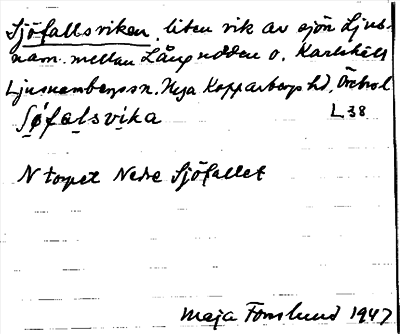 Sjöfallsviken, liten vik av sjön Ljus-
narn. mellan Långudden o. Karlshäll
Ljusnarsbergs sn. Nya Kopparbergs hd, Örebro l
Sjøfalsvika L 38
N torpet Nedre Sjöfallet
Maja Forslund 1947